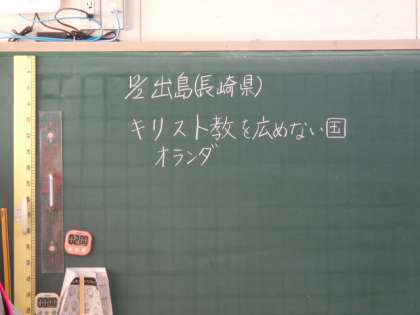 出島(長崎県)
キリスト教を広めない国
オランダ
02:00